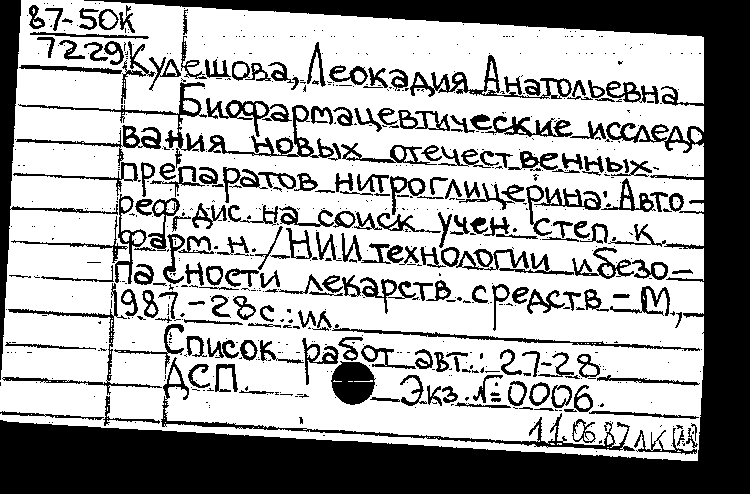 87-50К
7229
Кудешова, Леокадия Анатольевна
Биофармацевтические исследо
вания новых отечественных
препаратов нитроглицерина: Авто-
реф. дис. на соиск учен. степ. к.
фарм. н. / НИИ технологии и безо-
пасности лекарств. средств - М,
1987. - 28 с.: ил.
Список работ авт.: 27-28.
ДСП. Экз. №0006.
11.06.87 ЛК